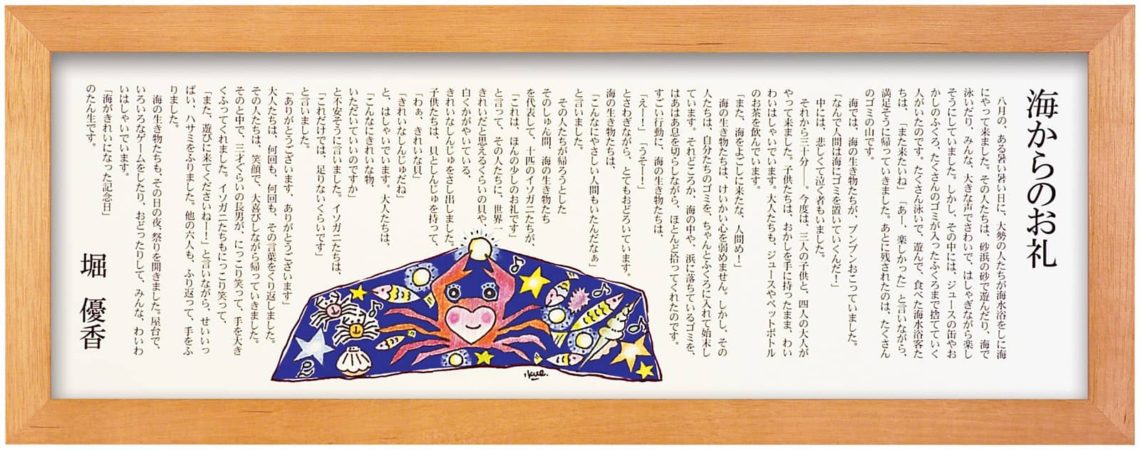 海からのお礼
八月の、ある暑い暑い日に、大勢の人たちが海水浴をしに海
にやって来ました。その人たちは、砂浜の砂で遊んだり、海で
泳いだり、みんな、大きな声でさわいで、はしゃぎながら楽し
そうにしていました。しかし、その中には、ジュースの缶やお
かしのふくろ、たくさんのゴミが入ったふくろまで捨てていく
人がいたのです。たくさん泳いで、遊んで、食べた海水浴客た
ちは、「また来たいね」「あー、楽しかった」と言いながら、
満足そうに帰っていきました。あとに残されたのは、たくさん
のゴミの山です。
海では、海の生き物たちが、プンプンおこっていました。
「なんで人間は海にゴミを置いていくんだ！」
中には、悲しくて泣く者もいました。
それから三十分―。今度は、三人の子供と、四人の大人が
やって来ました。子供たちは、おかしを手に持ったまま、わい
わいはしゃいでいます。大人たちも、ジュースやペットボトル
のお茶を飲んでいます。
「また、海をよごしに来たな、人間め！」
海の生き物たちは、けいかい心を弱めません。しかし、その
人たちは、自分たちのゴミを、ちゃんとふくろに入れて始末し
ています。それどころか、海の中や、浜に落ちているゴミを、
はあはあ息を切らしながら、ほとんど拾ってくれたのです。
すごい行動に、海の生き物たちは、
「えーー！」「うそーー！」
とさわぎながら、とてもおどろいています。
海の生き物たちは、
「こんなにやさしい人間もいたんだなぁ」
と言いました。
その人たちが帰ろうとした
そのしゅん間、海の生き物たち
を代表して、十匹のイソガニたちが、
「これは、ほんの少しのお礼です」
と言って、その人たちに、世界一
きれいだと思えるぐらいの貝や、
白くかがやいている、
きれいなしんじゅをさし出しました。
子供たちは、貝としんじゅを持って、
「わぁ、きれいな貝」
「きれいなしんじゅだね」
と、はしゃいでいます。大人たちは、
「こんなにきれいな物、
いただいていいのですか」
と不安そうに言いました。イソガニたちは、
「これだけでは、足りないくらいです」
と言いました。
「ありがとうございます、ありがとうございます」
大人たちは、何回も、何回も、その言葉をくり返しました。
その人たちは、笑顔で、大喜びしながら帰っていきました。
そのと中で、三才ぐらいの長男が、にっこり笑って、手を大き
くふってくれました。イソガニたちもにっこり笑って、
「また、遊びに来てくださいねーー！」と言いながら、せいいっ
ぱい、ハサミをふりました。他の六人も、ふり返って、手をふ
りました。
海の生き物たちも、その日の夜、祭りを開きました。屋台で、
いろいろなゲームをしたり、おどったりして、みんな、わいわ
いはしゃいでいます。
「海がきれいになった記念日」
のたん生です。
堀　優香
ikue